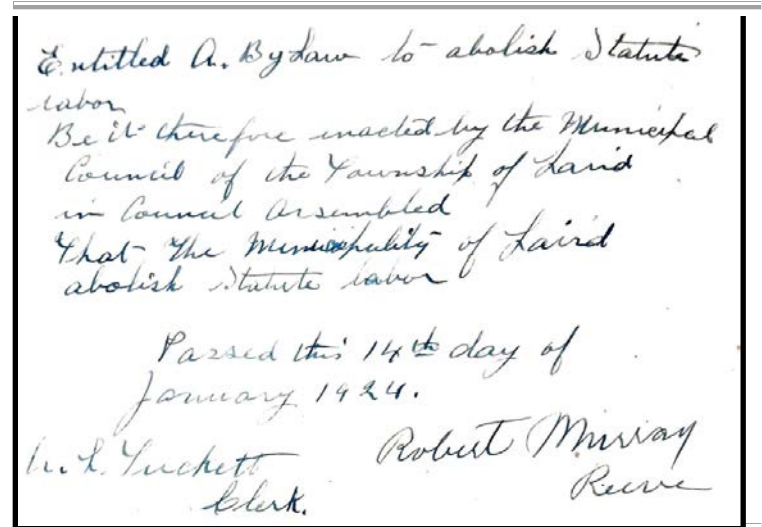 Entitled A. By Law to abolish Statute
labor
Be it therefore enacted by the Municipal
Council of the Township of Laird
in Council Assembled
That the Municipality of Laird
abolish Statute labor
Passed this 14th day of
January 1924.
Robert Murray
Tuckett
Reeve
Clerk.